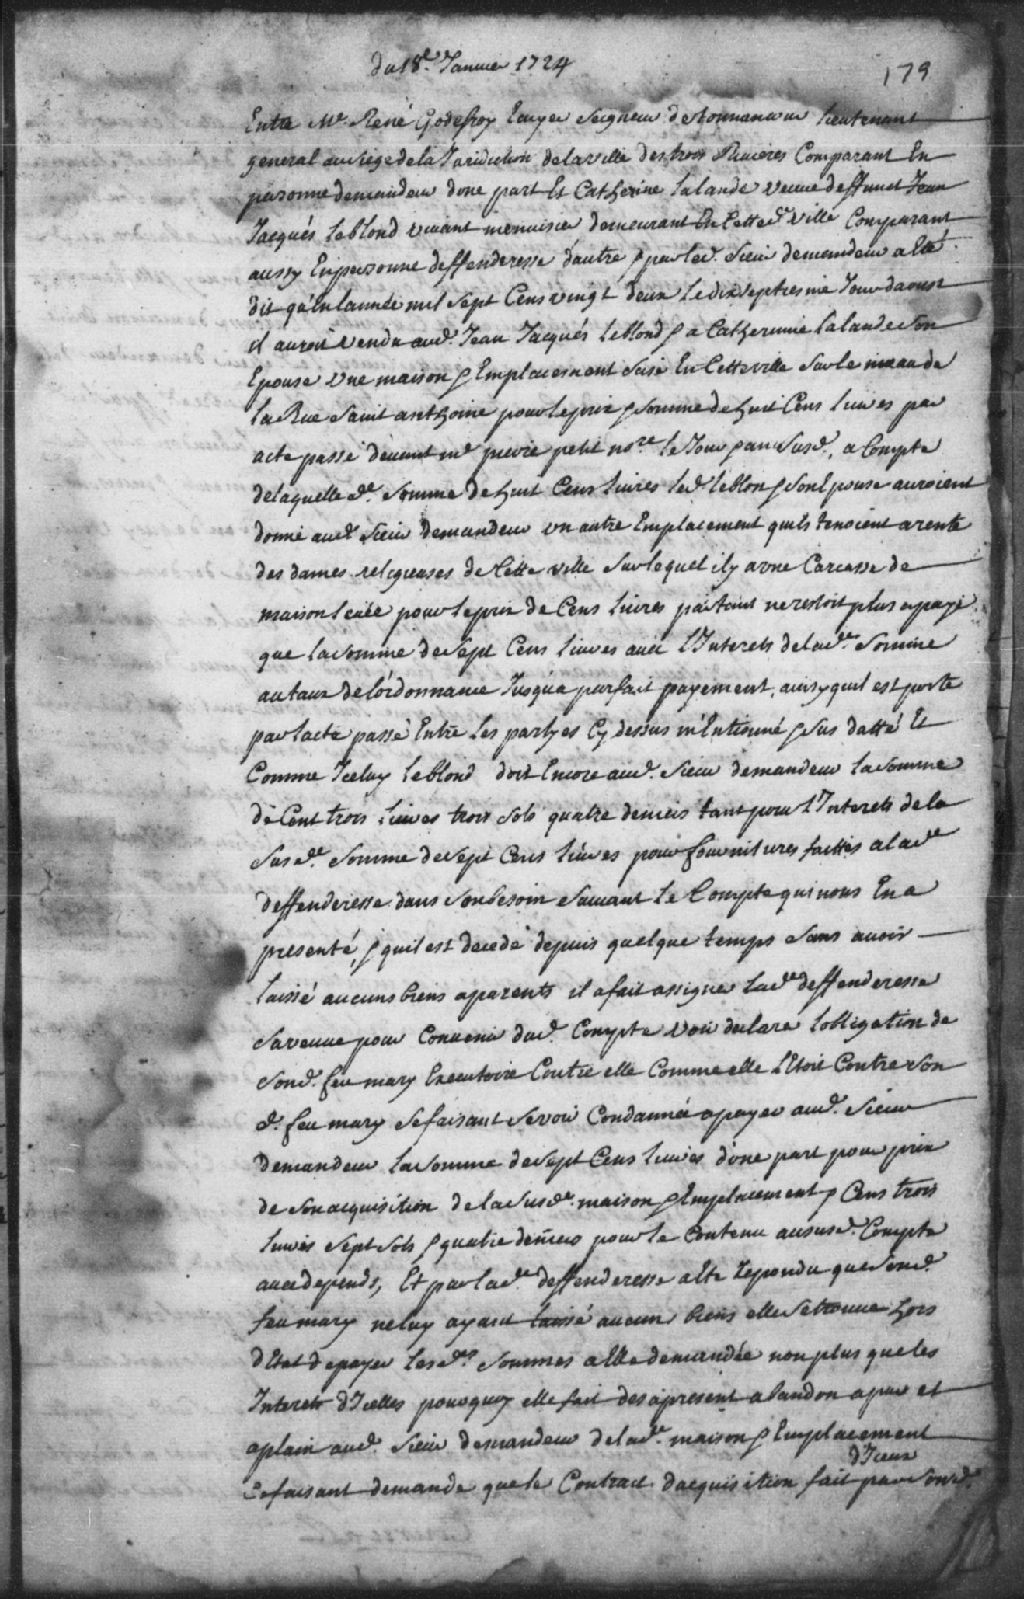 du 18e. Janvier 1724
179
Entre Mr. René Godefroy Ecuyer Seigneur de tonnancour lieutenant
general au siege de la Juridiction de la ville des trois Rivieres Comparant En
personne demandeur d'une part Et Catherine Lalande veuve deffunct Jean
Jacques leblond vivant menuisier demeurant En cette d. ville Comparant
aussy En personne deffenderesse d'autre, & par led. Sieur demandeur a Eté
dit qu'En lannée mil Sept Cens vingt deux Le dix septiesme Jour daoust
il auroit vendu aud. Jean Jacques leblond & a Catherinne Lalande Son
Epouse une maison & Emplacement Sise En Cette ville Sur le niveau de
la Rue Saint anthoine pour le prix & somme de huit Cens livres par
acte passé devant me pierre petit nore. le Jour & an Susd., a Compte
de laquelle de. Somme de huit Cens livres led. leblon & son Epouse auroient
donné aud. Sieur demandeur un autre Emplacement quils tenoient a rente
des dames religieuses de Cette ville Sur lequel il y a une Carcasse de
maison levée pour le prix de Cens livres partant ne restoit plus a payé
que la somme de Sept Cens livres avec l'Interets de lade. Somme
au taux de l'ordonnance Jusqua parfait payement, ainsy quil est porté
par lacte passé Entre Les partyes Cy dessus mEntionné & Sus datté Et
Comme Iceluy leblond doit Encore aud. Sieur demandeur la somme
de Cent trois livres trois Sols quatre deniers tant pour l'Interets de la
Susde. Somme de Sept Cens livres pour fournitures faittes a lade
deffenderesse dans Son besoin Suivant le Compte qui nous En a
presenté, & quil est decedé depuis quelque temps Sans avoir
laissé aucuns biens aparents il a fait assigner lade deffenderesse
Sa veuve pour Convenir dud. Compte voir declaré lobligation de
Sond. feu mary Executoire Contre elle Comme elle l'Etoit Contre Son
d. feu mary Se faisant Se voir Condamnée a payer aud. Sieur
demandeur la Somme de Sept Cens livres d'une part pour prix
de Son acquisition de la Susde. maison & Emplacement & Cens trois
livres Sept Sols & quatre deniers pour le Contenu au susd. Compte
avec depends, Et par lade. deffenderesse a Eté repondu que Sond.
feu mary ne luy ayant laissé aucun biens elle Se trouve hors
d'Etat de payer Lesdes. Sommes a Elle demandée non plus que les
Interets d'Icelles pourquoy elle fait des a present abandon a pur et
a plain aud. Sieur demandeur de lade. maison & Emplacement
Ce faisant demande que le Contract dacquisition d'Iceux fait par Sond.